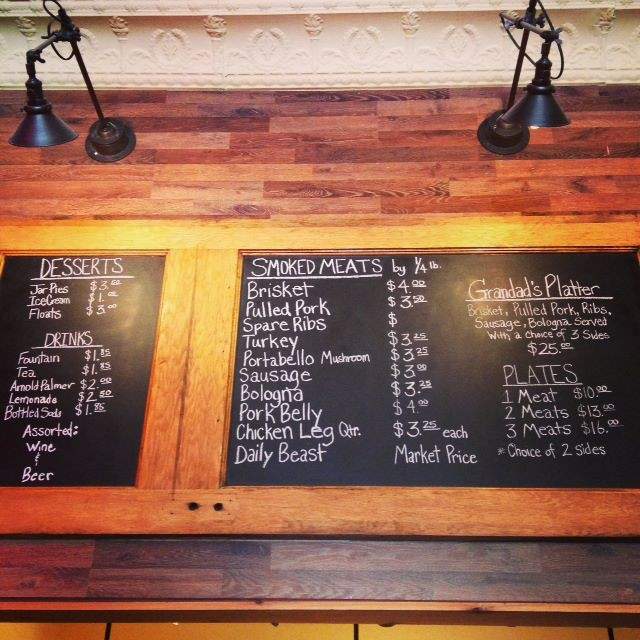 DESSERTS
Jar Pies $3.50
Ice Cream $1.00
Floats $3.00
DRINKS
Fountain $1.85
Tea $1.85
Arnold Palmer $2.00
Lemonade $2.50
Bottled Soda $1.85
Assorted:
Wine
&
Beer
SMOKED MEATS by 1/4 lb.
Brisket $4.00
Pulled Pork $3.50
Spare Ribs $
Turkey $3.25
Portabello Mushroom $3.25
Sausage $3.00
Bologna $3.25
Pork Belly $4.00
Chicken Leg Qtr. $3.25 each
Daily Beast Market Price
Grandad's Platter
Brisket, Pulled Pork, Ribs,
Sausage, Bologna Served
With a choice of 3 Sides
$25.00
PLATES
1 Meat $10.00
2 Meats $13.00
3 Meats $16.00
* Choice of 2 sides